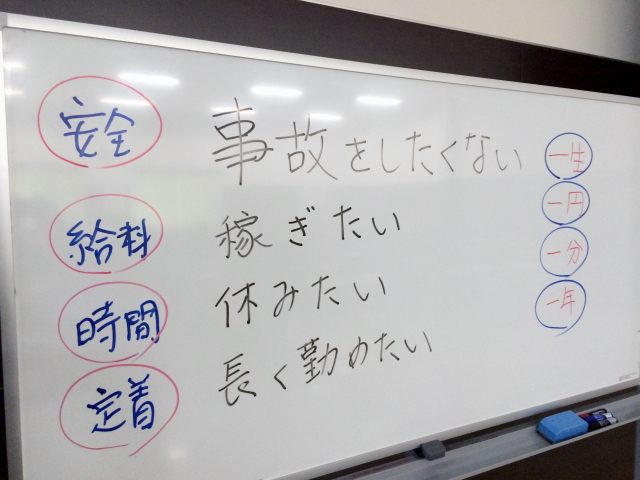 安全 事故をしたくない 一生
給料 稼ぎたい 一円
時間 休みたい 一分
定着 長く勤めたい 一年